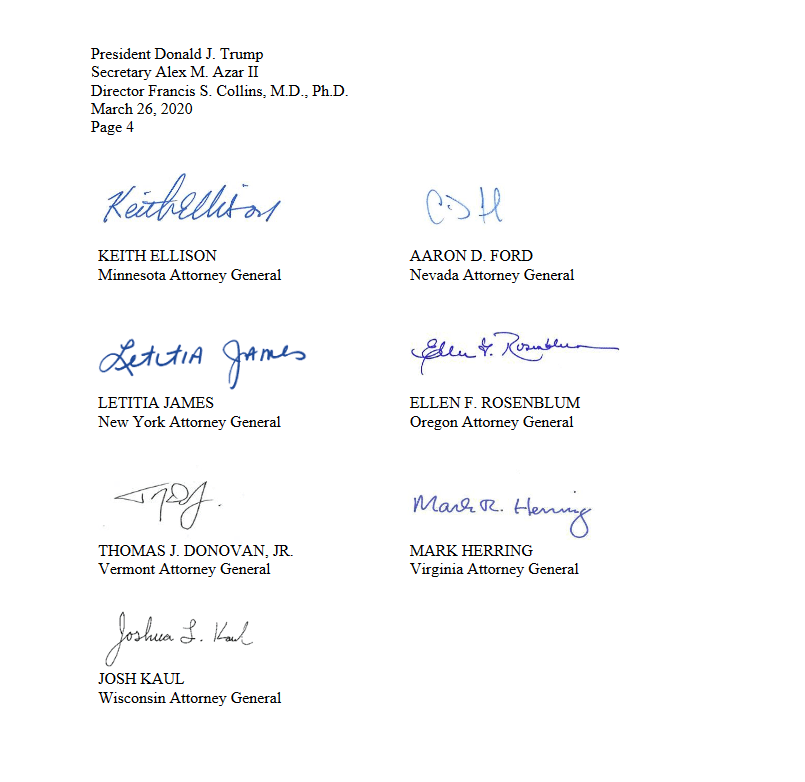 President Donald J. Trump
Secretary Alex M. Azar II
Director Francis S. Collins, M.D., Ph.D.
March 26, 2020
Page 4
Keith Ellison
KEITH ELLISON
Minnesota Attorney General
AARON D. FORD
Nevada Attorney General
Letitia James
LETITIA JAMES
New York Attorney General
Ellen F. Rosenblum
ELLEN F. ROSENBLUM
Oregon Attorney General
THOMAS J. DONOVAN, JR.
Vermont Attorney General
Mark R. Herring
MARK HERRING
Virginia Attorney General
Joshua L. Kaul
JOSH KAUL
Wisconsin Attorney General